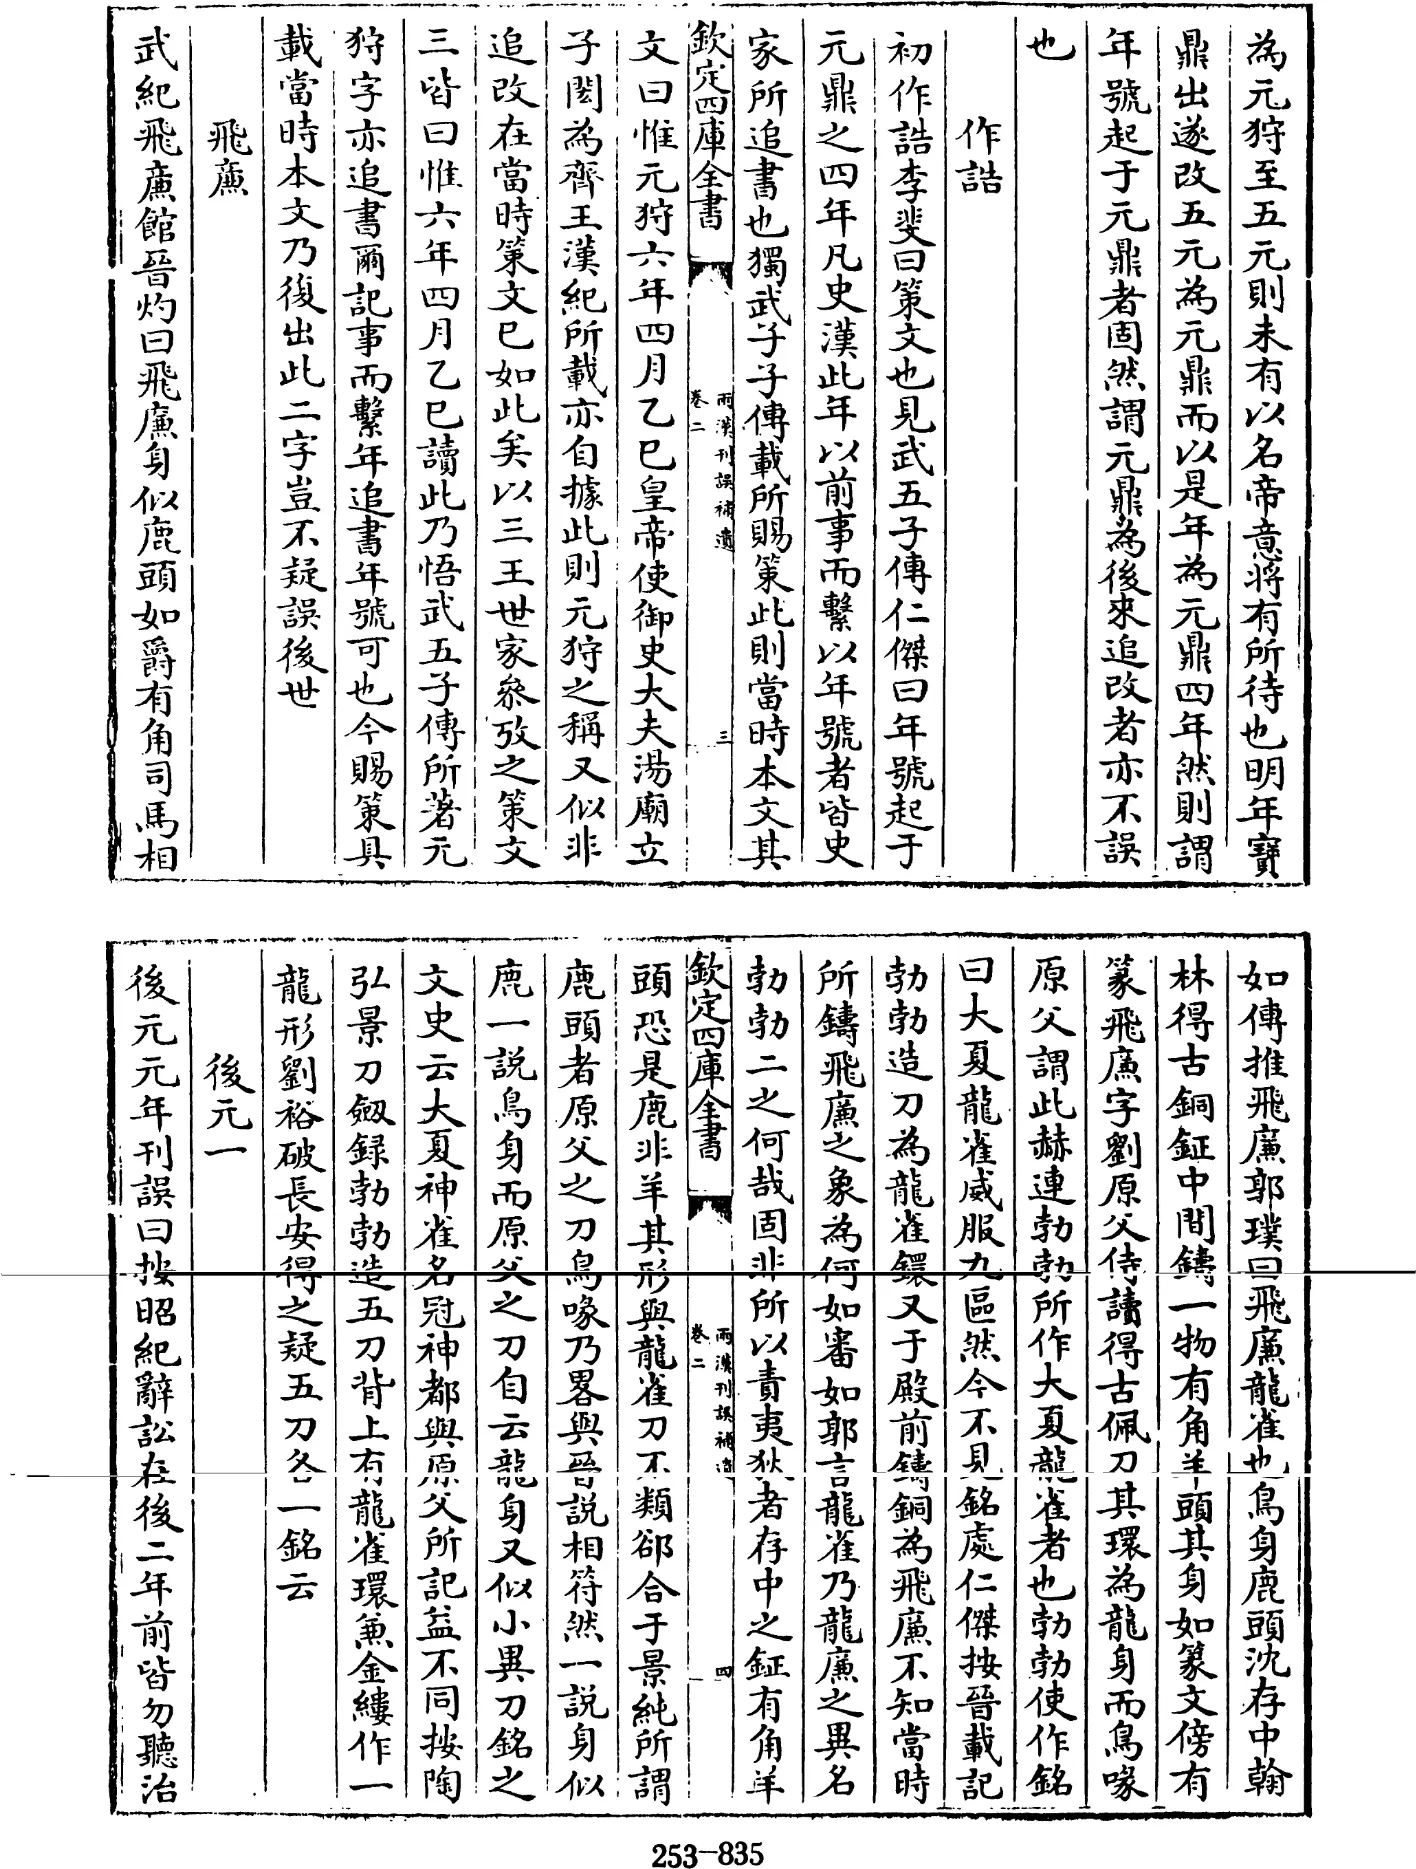 為元狩至五元則未有以名帝意將有所待也明年寶
鼎出遂改五元為元鼎而以是年為元鼎四年然則謂
年號起于元鼎者固然謂元鼎為後來追改者亦不誤
也
作誥
初作誥李斐曰策文也見武五子傳仁傑曰年號起于
元鼎之四年凡史漢此年以前事而繫以年號者皆史
家所追書也獨武子子傳載所賜策此則當時本文其
欽定四庫全書
兩漢刊誤補遺
卷二
三
文曰惟元狩六年四月乙巳皇帝使御史大夫湯廟立
子閎為齊王漢紀所載亦自據此則元狩之稱又似非
追改在當時策文已如此矣以三王世家叅攷之策文
三皆曰惟六年四月乙巳讀此乃悟武五子傳所著元
狩字亦追書爾記事而繫年追書年號可也今賜策具
載當時本文乃復出此二字豈不疑誤後世
飛廉
武紀飛廉館晉灼曰飛廉身似鹿頭如爵有角司馬相
如傳推飛廉郭璞曰飛廉龍雀也鳥身鹿頭沈存中翰
林得古銅鉦中間鑄一物有角羊頭其身如篆文傍有
篆飛廉字劉原父侍讀得古佩刀其環為龍身而鳥喙
原父謂此赫連勃勃所作大夏龍雀者也勃勃使作銘
曰大夏龍雀威服九區然今不見銘處仁傑按晉載記
勃勃造刀為龍雀鐶又于殿前鑄銅為飛廉不知當時
所鑄飛廉之象為何如審如郭言龍雀乃龍廉之異名
勃勃二之何哉固非所以責夷狄者存中之鉦有角羊
欽定四庫全書
兩漢刊誤補遺
卷二
四
頭恐是鹿非羊其形與龍雀刀不類郤合于景純所謂
鹿頭者原父之刀鳥喙乃畧與晉説相符然一説身似
鹿一説鳥身而原父之刀自云龍身又似小異刀銘之
文史云大夏神雀名冠神都與原父所記益不同按陶
弘景刀劔録勃勃造五刀背上有龍雀環兼金縷作一
龍形劉裕破長安得之疑五刀各一銘云
後元一
後元元年刊誤曰按昭紀辭訟在後二年前皆勿聽治
253-835